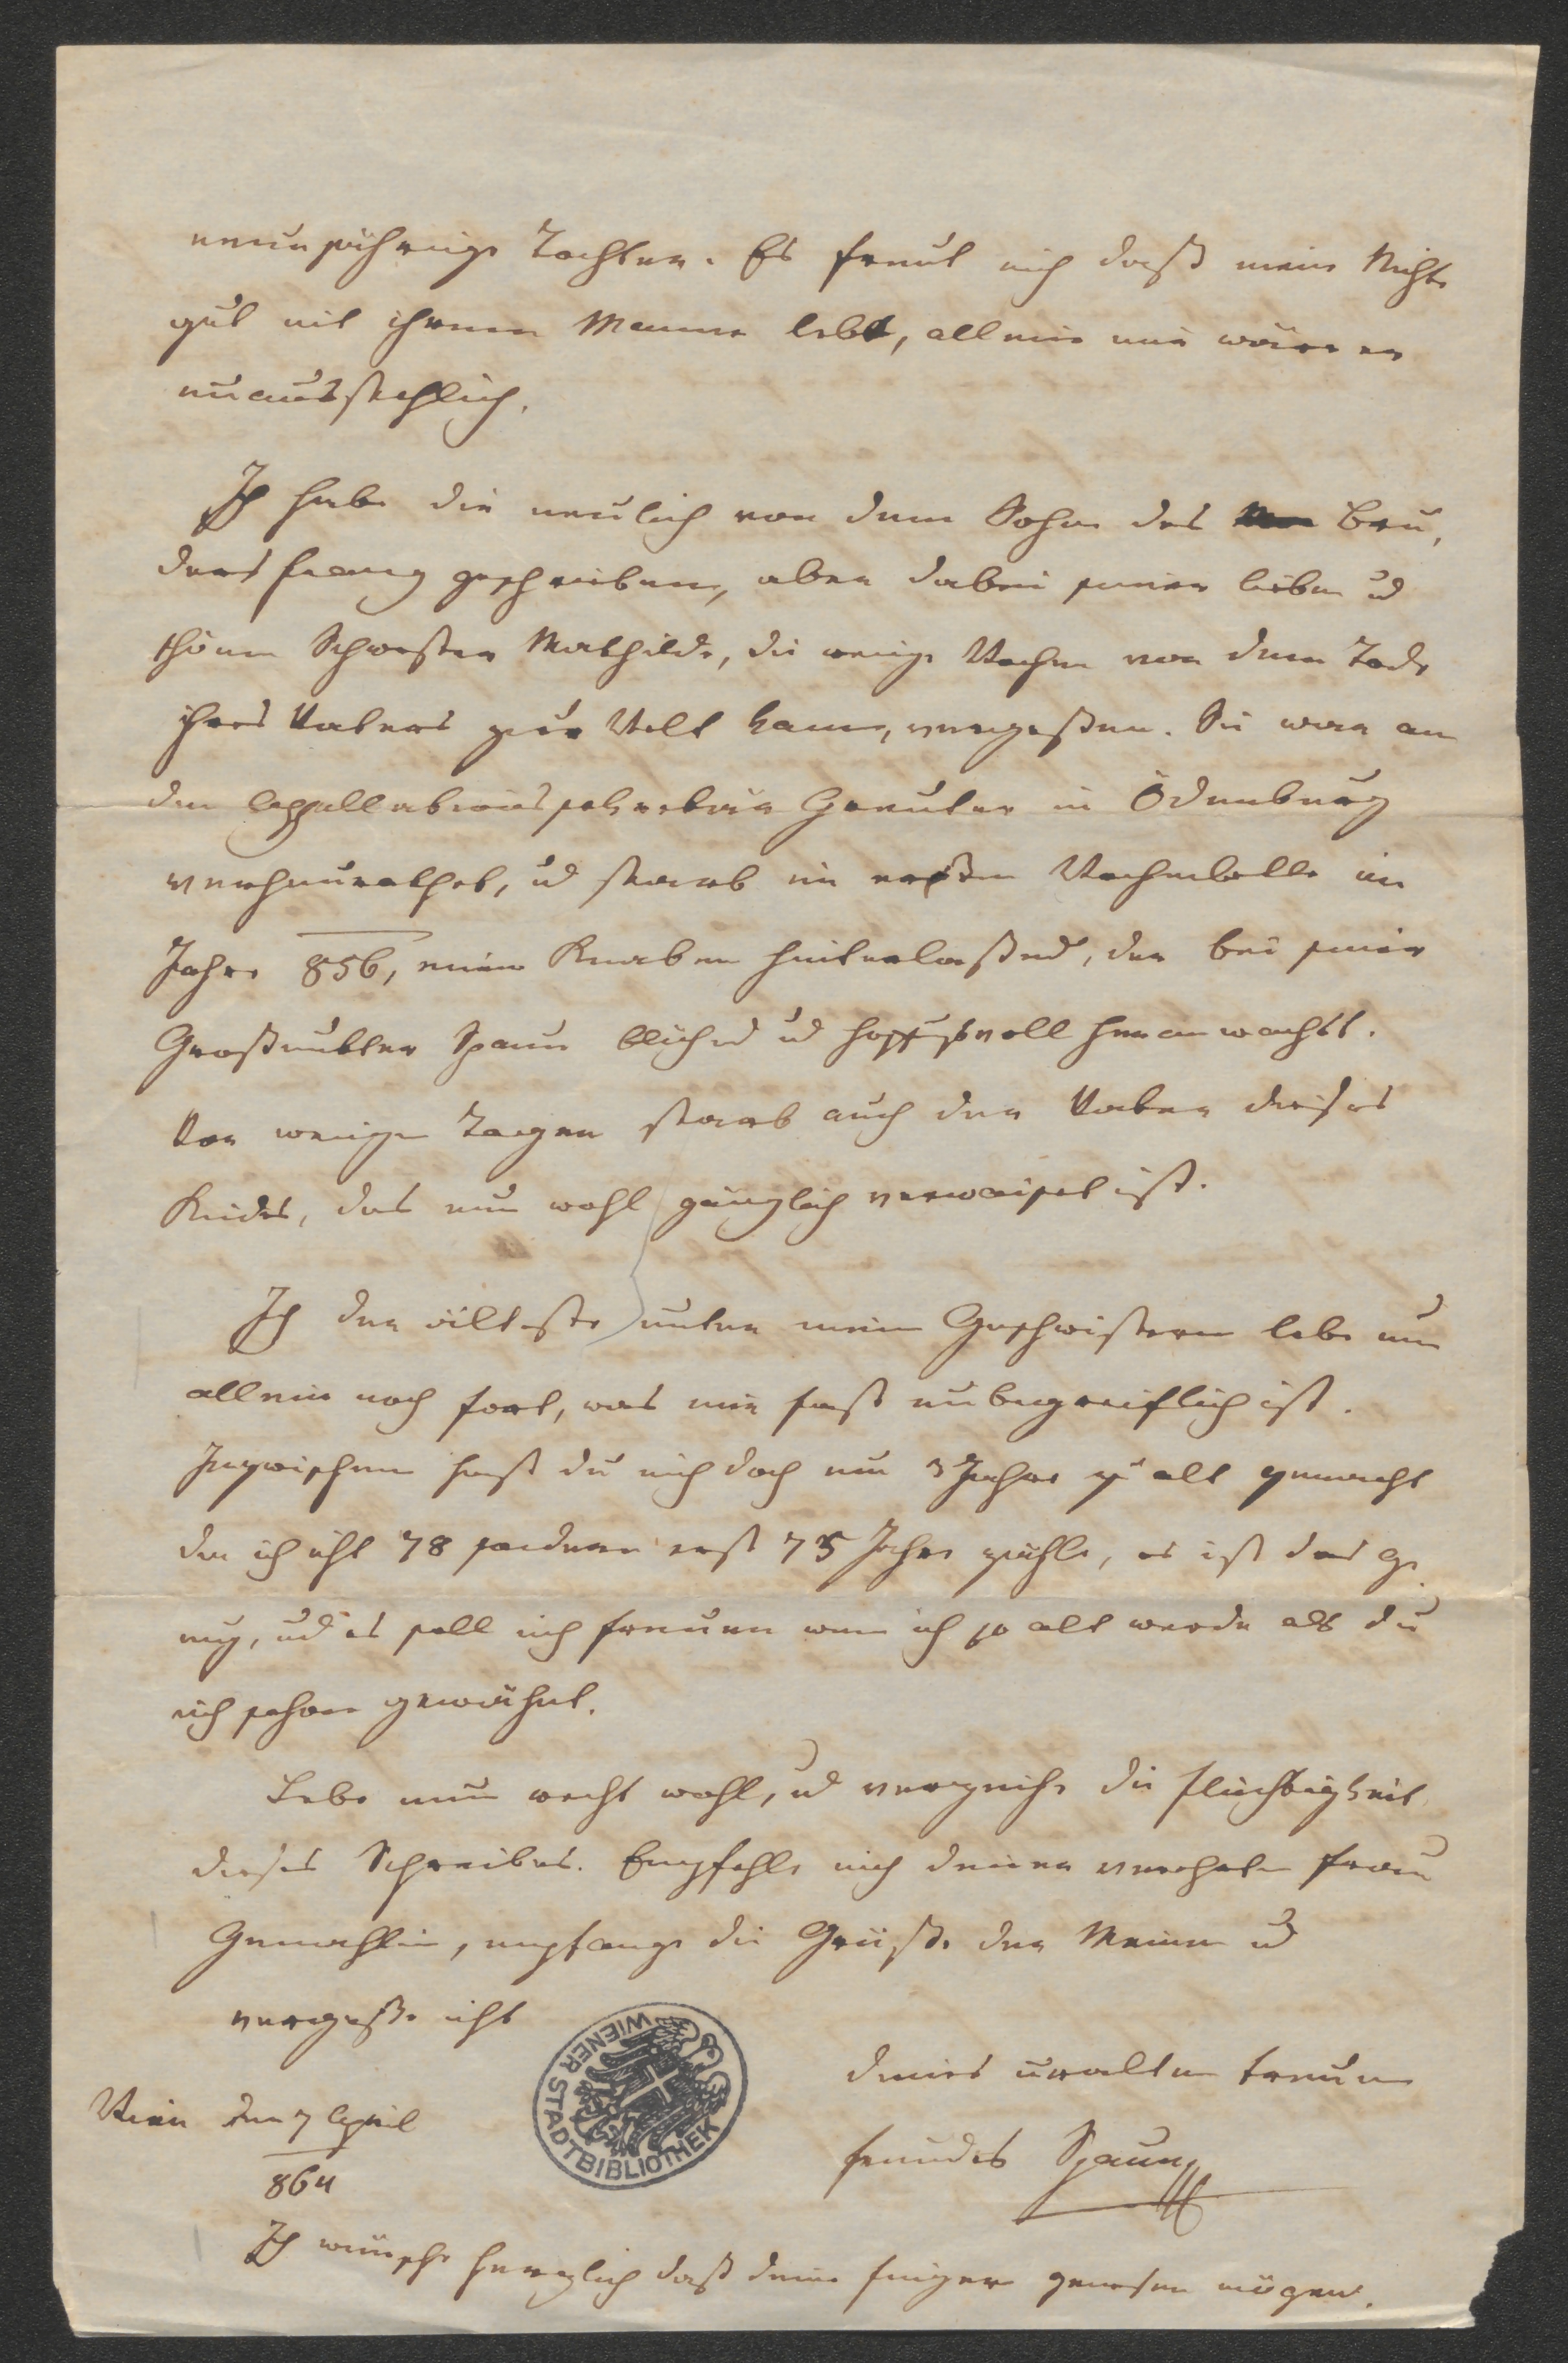 neunjährige Tochter. Es freut mich daß meine Nichte
gut mit ihrem Manne lebt, allein mir wäre er
unausstehlich.
Ich habe dir neulich von dem Sohne des Bru,
ders Franz geschrieben, aber dabei seiner lieben ud
schönen Schwester Mathilde, die wenige Wochen vor dem Tode
ihres Vaters zur Welt kam, vergeßen. Sie war an
den Appellationssekretär Greuter in Ödenburg
verheurathet, ud starb im ersten Wochenbette im
Jahre 856, einen Knaben hinterlaßend, der bei seiner
Großmutter Spaun blühend ud hoffnungsvoll heranwachst.
Vor wenigen Tagen starb auch der Vater dieses
Kindes, das nun wohl gänzlich verwaiset ist.
Ich der älteste unter meinen Geschwistern lebe nun
allein noch fort, was mir fast unbegreiflich ist.
Inzwischen hast du mich doch um 3 Jahre zu alt gemacht
da ich nicht 78 sondern erst 75 Jahre zähle, es ist das ge
nug, ud es soll mich freuen wenn ich so alt werde als du
mich schon gewähnt.
Lebe nun recht wohl, ud verzeihe die Flüchtigkeit
dieses Schreibens. Empfehle mich deiner verehrten Frau
Gemahlin, empfange die Grüße der Meinen ud
vergeße nicht
deines uralten treuen
Freundes Spaun
Wien den 7 April
864
WIENER STADTBIBLIOTHEK
Ich wünsche herzlich daß deine Finger genesen mögen.